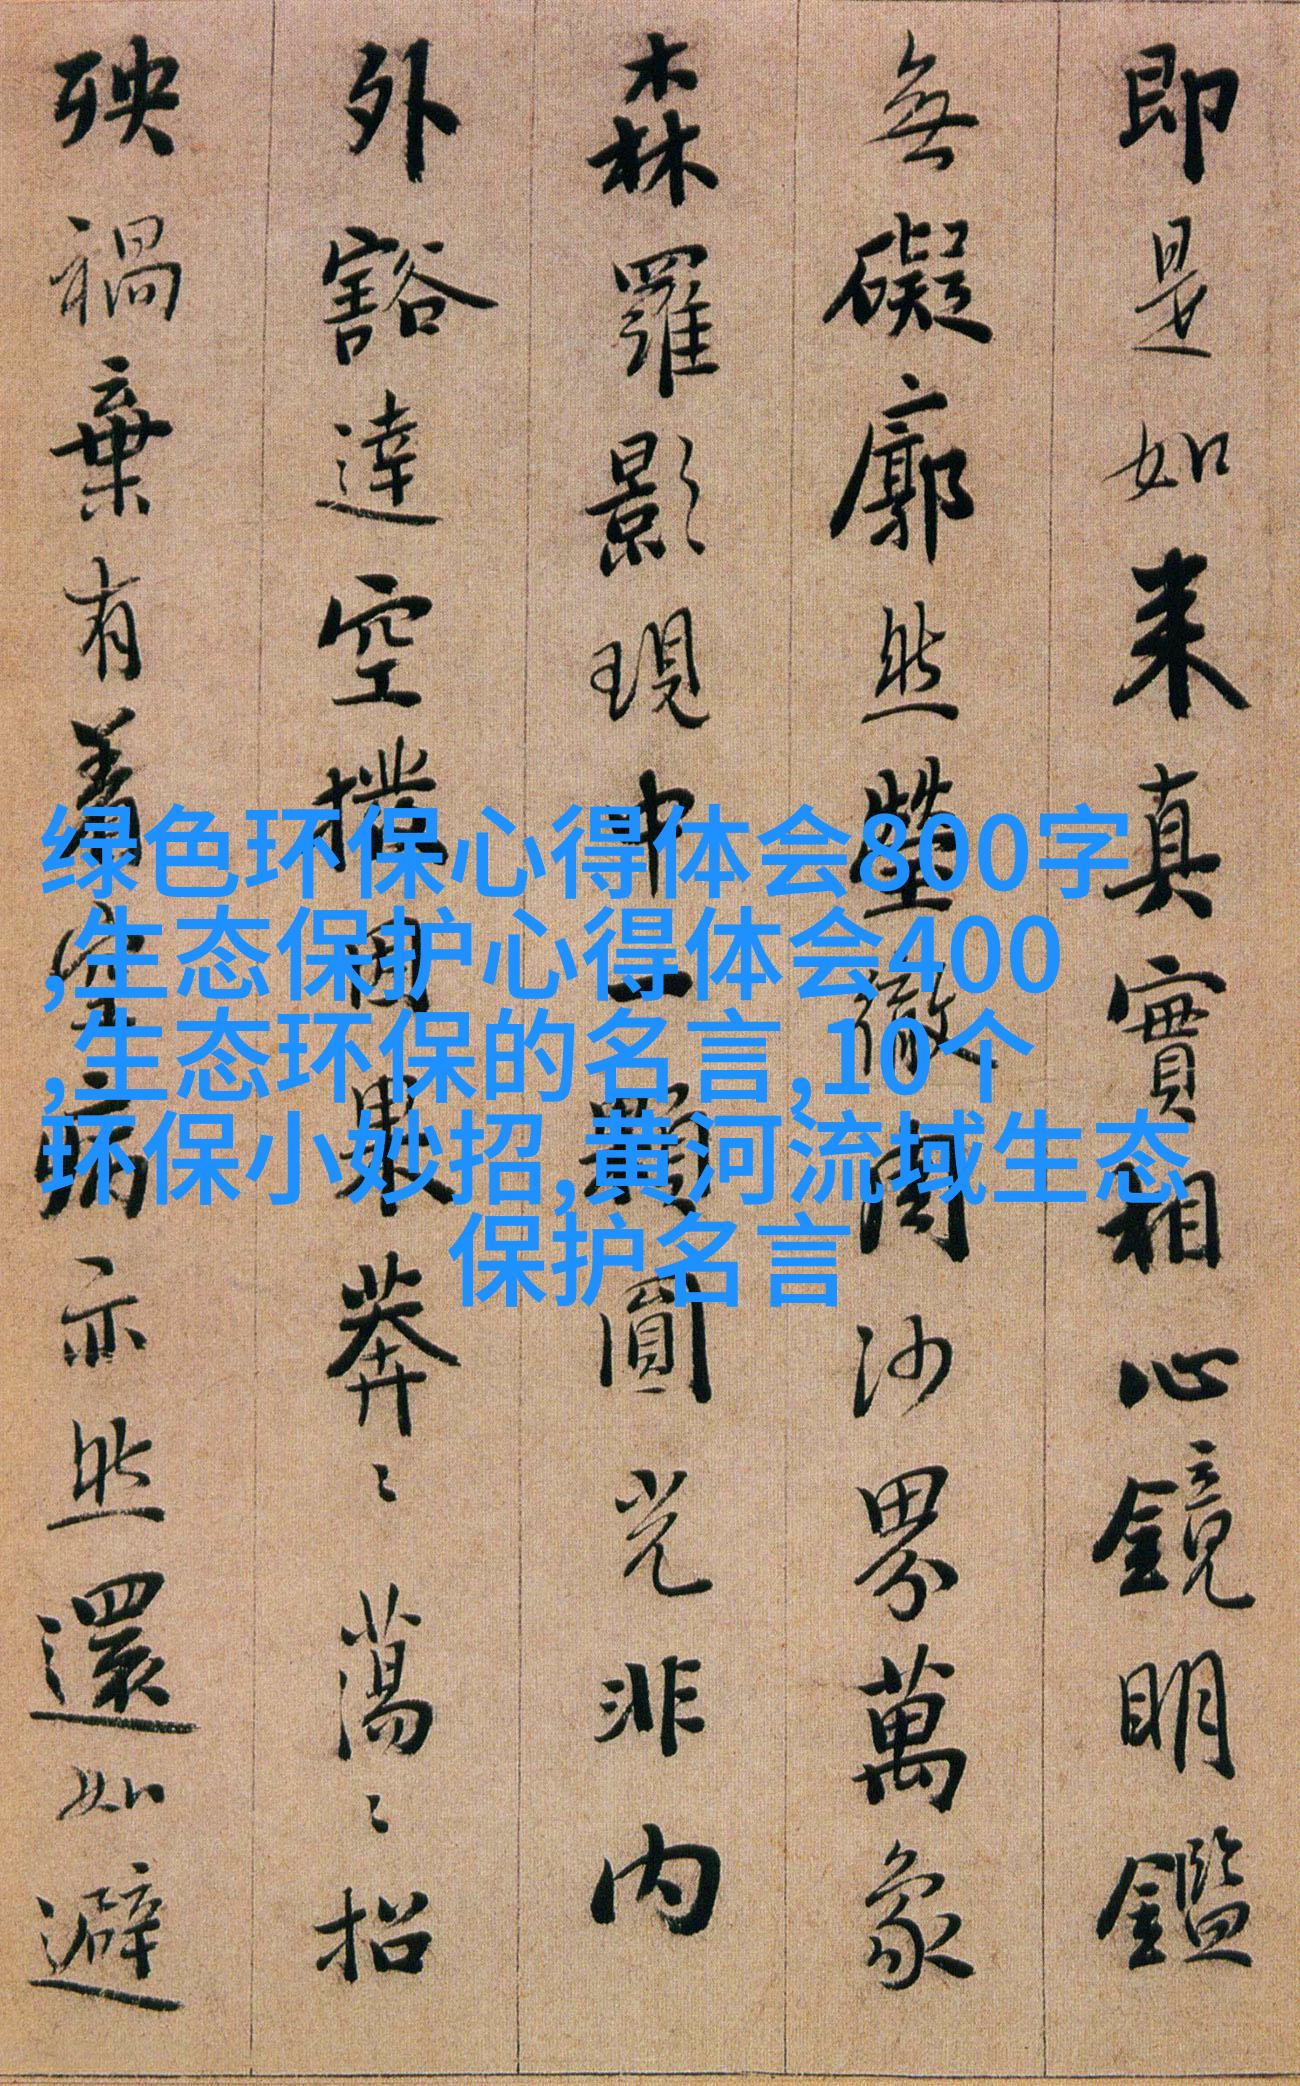 即是如来真實相心鏡明鑑
無礙廓然瑩徹周沙界萬象
森羅影現中一顆圓光非内
外豁達空撥因果莽〻蕩〻招
殃禍棄有著空病亦然還如避
绿色环保心得体会800字
,生态保护心得体会400
,生态环保的名言,10个
环保小妙招,黄河流域生态
保护名言